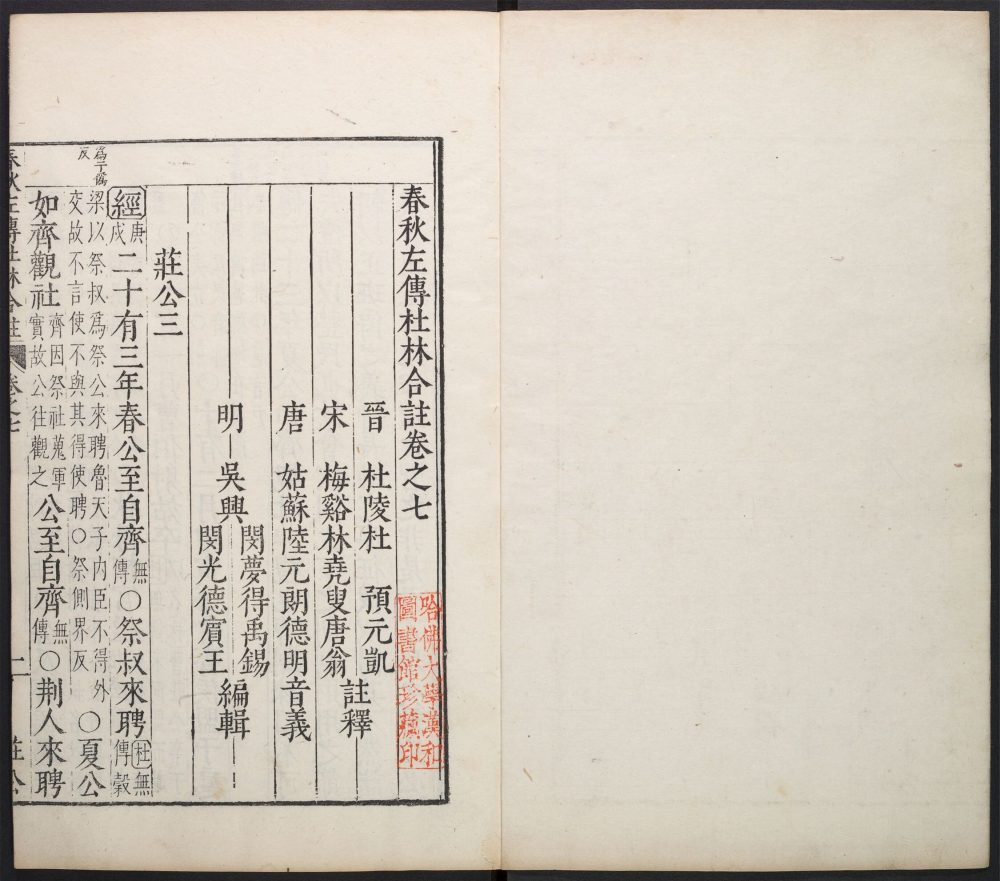 春秋左傳杜林合註卷之七
哈佛大學漢和
圖書館珍藏印
晉 杜陵杜 預元凱
宋 梅谿林堯叟唐翁
註釋
唐 姑蘇陸元朗德明音義
明 吳興
閔夢得禹錫
閔光德賓王
編輯
莊公三
經庚戌二十有三年春公至自齊無傳○祭叔來聘杜無傳穀
梁以祭叔爲祭公來聘魯天子内臣不得外
交故不言使不與其得使聘○祭側界反
○夏公
爲于僞反
如齊觀社齊因祭社蒐軍實故公往觀之公至自齊無傳○荆人來聘
春秋左傳杜林合註 卷之七 二 莊公